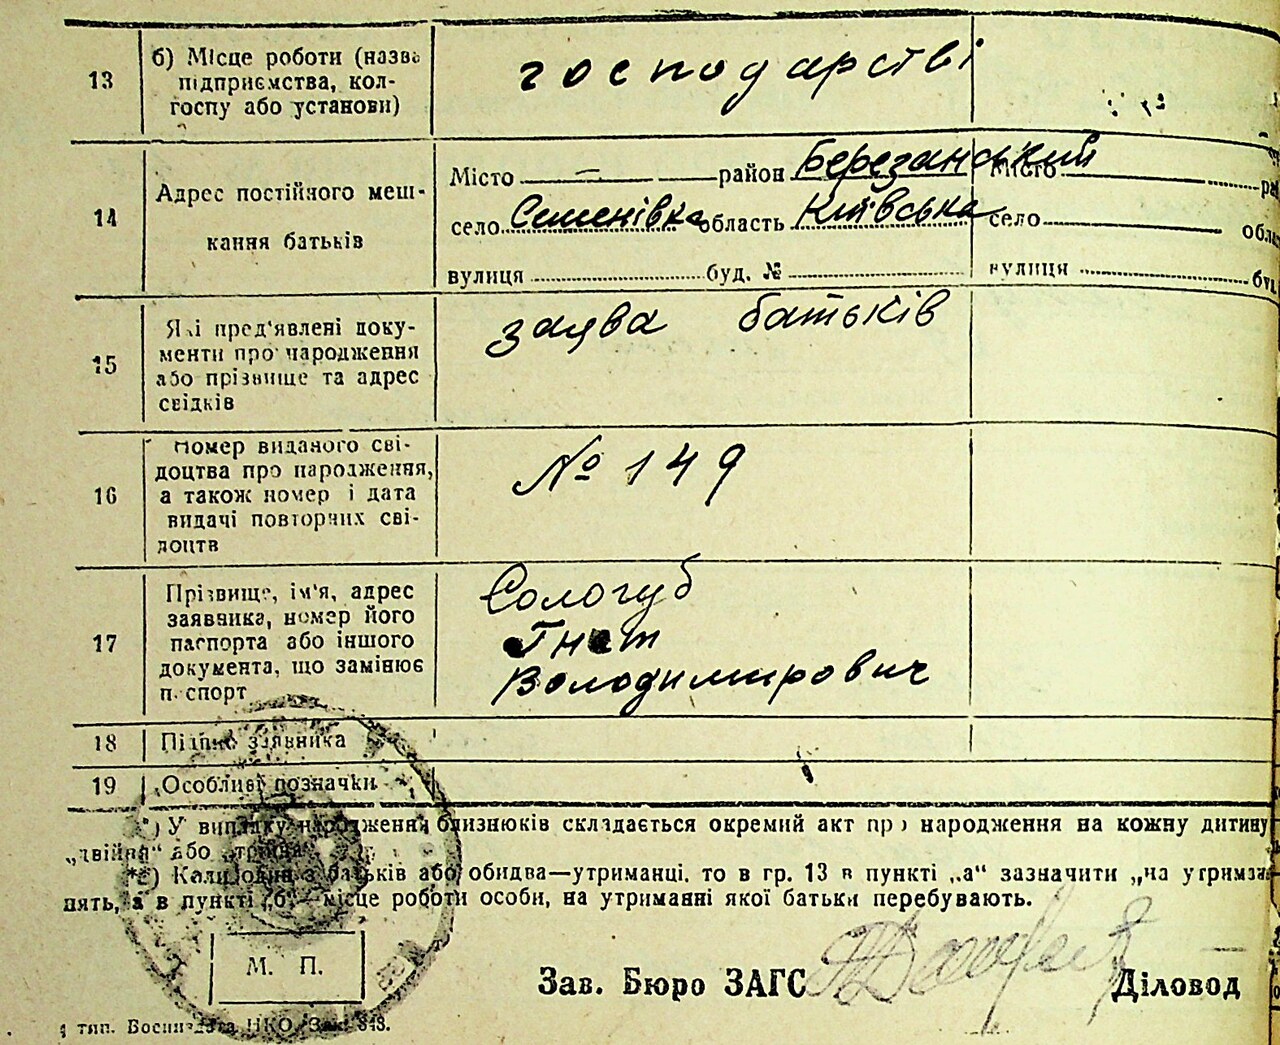 13
б) Місце роботи (назва
підприємства, кол-
госпу або установи)
господарстві
14
Адрес постійного меш-
кання батьків
Місто — район Березанський
село Семенівка область Київська
вулиця буд. №
Місто
село
вулиця
15
Які пред'явлені доку-
менти про народження
або прізвище та адрес
свідків
заява батьків
16
Номер виданого сві-
доцтва про народження,
а також номер і дата
видачі повторних сві-
доцтв
№ 149
17
Прізвище, ім'я, адрес
заявника, номер його
паспорта або іншого
документа, що замінює
паспорт
Сологуб
Гнат
Володимирович
18
Підпис заявника
19
Особливі позначки
*) У випадку народження близнюків складається окремий акт про народження на кожну дитину
„двійня“ або „трійня“
**) Коли один з батьків або обидва—утриманці, то в гр. 13 в пункті „а“ зазначити „на
а в пункті „б“—місце роботи особи, на утриманні якої батьки перебувають.
М. П.
Зав. Бюро ЗАГС
Діловод
тип. НКО. Зак. 343.